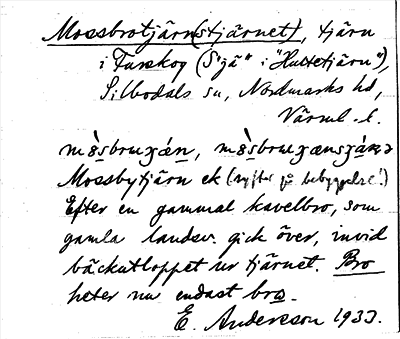 Mossbrotjärn(stjärnet), tjärn
i Furskog ("Sjä" i "Huttetjärn"),
Silbodals sn, Nordmarks hd,
Värml. l.
Mossbytjärn ek (syftar på bebyggelse!)
Efter en gammal kavelbro, som
gamla landsv. gick över, invid
bäckutloppet ur tjärnet. Bro
heter nu endast bro.
E. Andersson 1933.